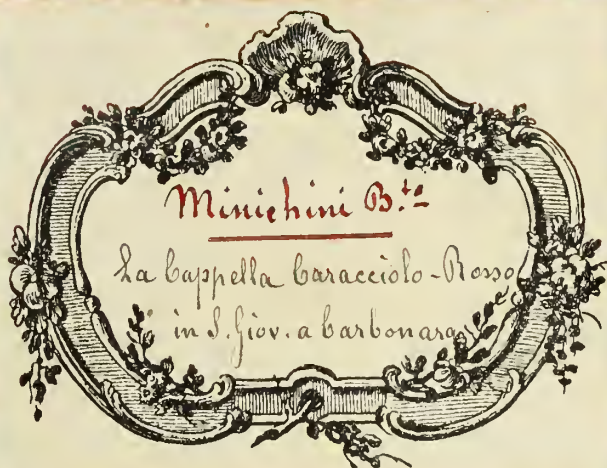 Minichini B.to
La Cappella Caracciolo-Rosso
in S. Giov. a Carbonara